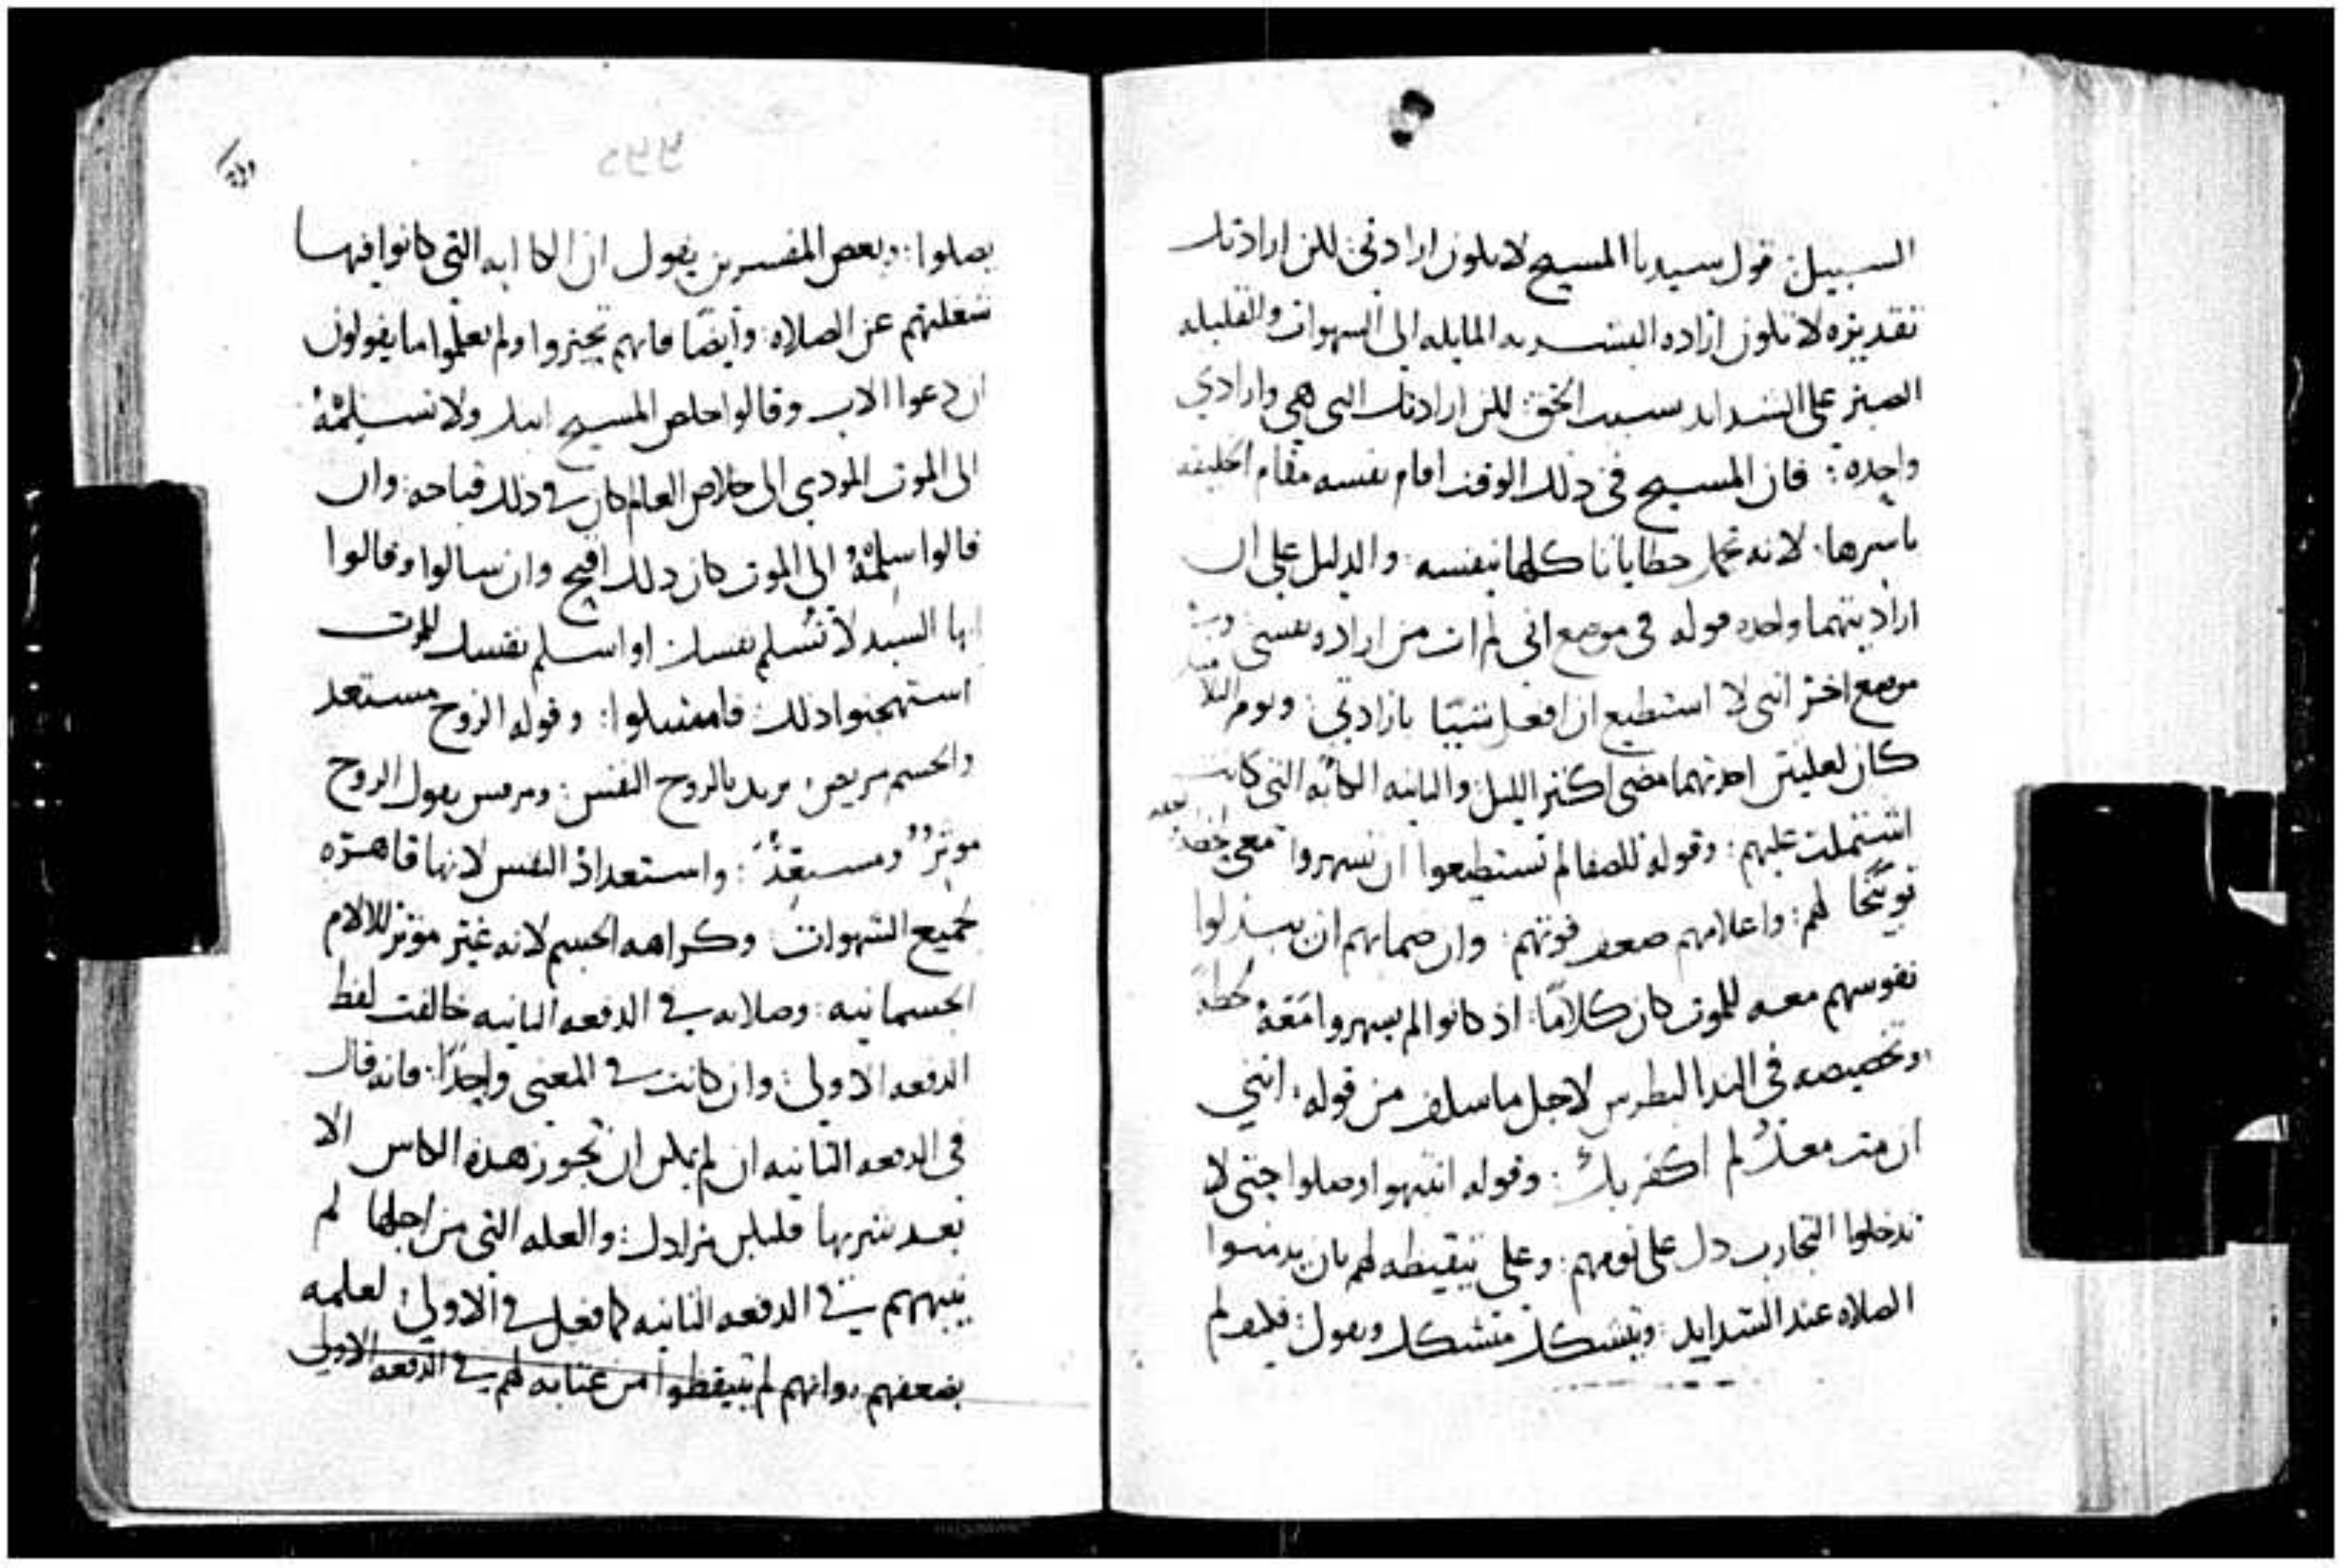 السبيل: قول سيدنا المسيح لا يكون ارادتي: لكن ارادتك
تقديره لا تكون اراده البشريه المايله الى الشهوات والقليله
الصبر على الشدايد سبب الحق: لكن ارادتك التي هي وارادتي
واحده: فان المسيح في ذلك الوقت اقام نفسه مقام الخليقه
باسرها. لانه تحمل خطايانا كلها بنفسه: والدليل على ان
ارادتهما واحده قوله في موضع اني لم ات من اراده نفسي وفي
موضع اخر انني لا استطيع ان افعل شيًا بارادتي: ونوم التلاميذ
كان لعلتين احدتهما مضي اكثر الليل: والثانيه الكابه التي كانت
اشتملت عليهم: وقوله للصفا لم تستطيعوا ان تسهروا معي لحظه
توبيخًا لهم: واعلامهم ضعف قوتهم: وان ضمانهم ان يبذلوا
نفوسهم معه للموت كان كلامًا: اذ كانوا لم يسهروا معه لحظه
وتخصيصه في الندا لبطرس لاجل ما سلف من قوله: انني
ان مت معك لم اكفر بك: وقوله انتبهوا وصلوا حتى لا
تدخلوا التجارب دل على نومهم: وعلى تيقيظه لهم بان يدمنوا
الصلاه عند الشدايد: ويتشكك متشكك ويقول: فكيف لم
يصلوا: وبعض المفسرين يقول ان الكابه التي كانوا فيها
شغلتهم عن الصلاه: وأيضًا فانهم تحيروا ولم يعلموا ما يقولون
ان دعوا الاب وقالوا خلص المسيح ابنك ولا تسلمه
الى الموت المودي الى خلاص العالم كان في ذلك قباحه: وان
قالوا سلمه الى الموت كان ذلك اقبح وان سالوا وقالوا
ايها السيد لا تسلم نفسك او اسلم نفسك للموت
استهجنوا ذلك: فامسكوا: وقوله الروح مستعد
والجسم مريض: يريد بالروح النفس: ومرقس يقول الروح
موثر ومستعد: واستعداد النفس لانها قاهره
لجميع الشهوات: وكراهه الجسم لانه غير موثر للالام
الجسمانيه: وصلاته في الدفعه الثانيه خالفت لفظ
الدفعه الاولى: وان كانت في المعنى واحدًا: فانه قال
في الدفعه الثانيه ان لم يمكن ان تجوز هذه الكاس الا
بعد شربها فليكن مرادك: والعله التي من اجلها لم
ينبههم في الدفعه الثانيه كما فعل في الاولى: لعلمه
بضعفهم وانهم لم يتيقظوا من عتابه لهم في الدفعه الاولى